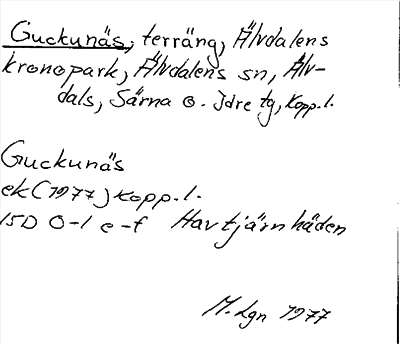 Guckunäs, terräng, Älvdalens
kronopark, Älvdalens sn, Älv-
dals, Särna o. Idre tg, Kopp.l.
Guckunäs
ek (1977) Kopp.l.
15D 0-1 e-f Havtjärnhäden
M. Lgn 1977